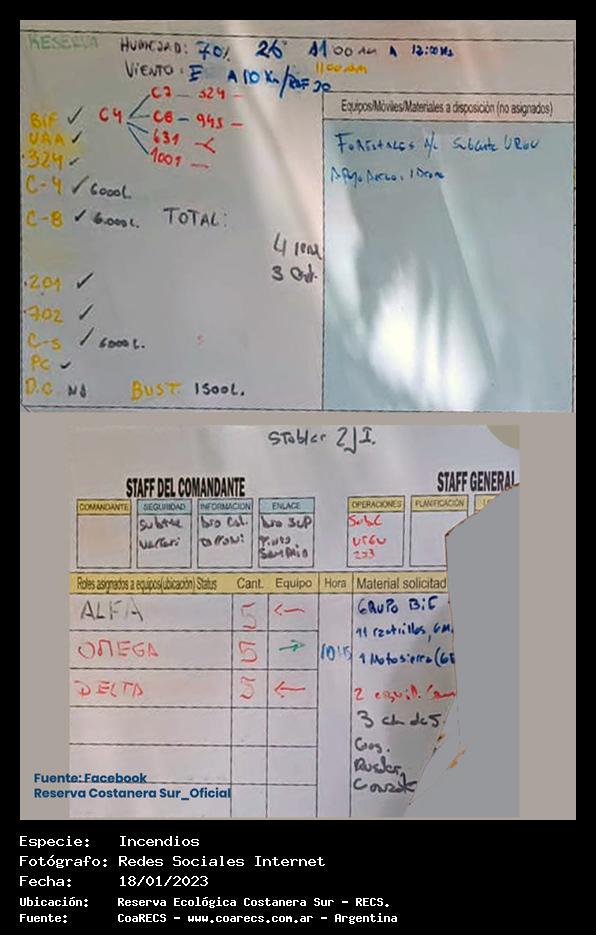 RESERVA
HUMEDAD: 70% 26° 11:00 AM A 12:00 Hs
11:00 AM
VIENTO: E A 10 Km/
C7 324 —
BIF ✓ C4 C8 — 945 —
UAA ✓ 631
324 ✓ 1001 —
C-4 ✓ 6000L
C-8 ✓ 6000L. TOTAL:
4
3
201 ✓
702 ✓
C-5 ✓ 6000L.
PC ✓
D.C. BUST. 1500L.
Equipos/Móviles/Materiales a disposición (no asignados)
FORESTALES A/C Subcte URGU
STAFF DEL COMANDANTE
STAFF GENERAL
COMANDANTE SEGURIDAD INFORMACION ENLACE OPERACIONES PLANIFICACIÓN
Subcte SubC
URGU
Roles asignados a equipos(ubicación) Status Cant. Equipo Hora Material solicitad
ALFA 5 ← GRUPO BIF
11 rastrillos,
OMEGA 5 → 10:15 1 Motosierra
DELTA 5 ← 2
3 ch de 5.
Fuente: Facebook
Reserva Costanera Sur_Oficial
Especie: Incendios
Fotógrafo: Redes Sociales Internet
Fecha: 18/01/2023
Ubicación: Reserva Ecológica Costanera Sur - RECS.
Fuente: CoaRECS - www.coarecs.com.ar - Argentina